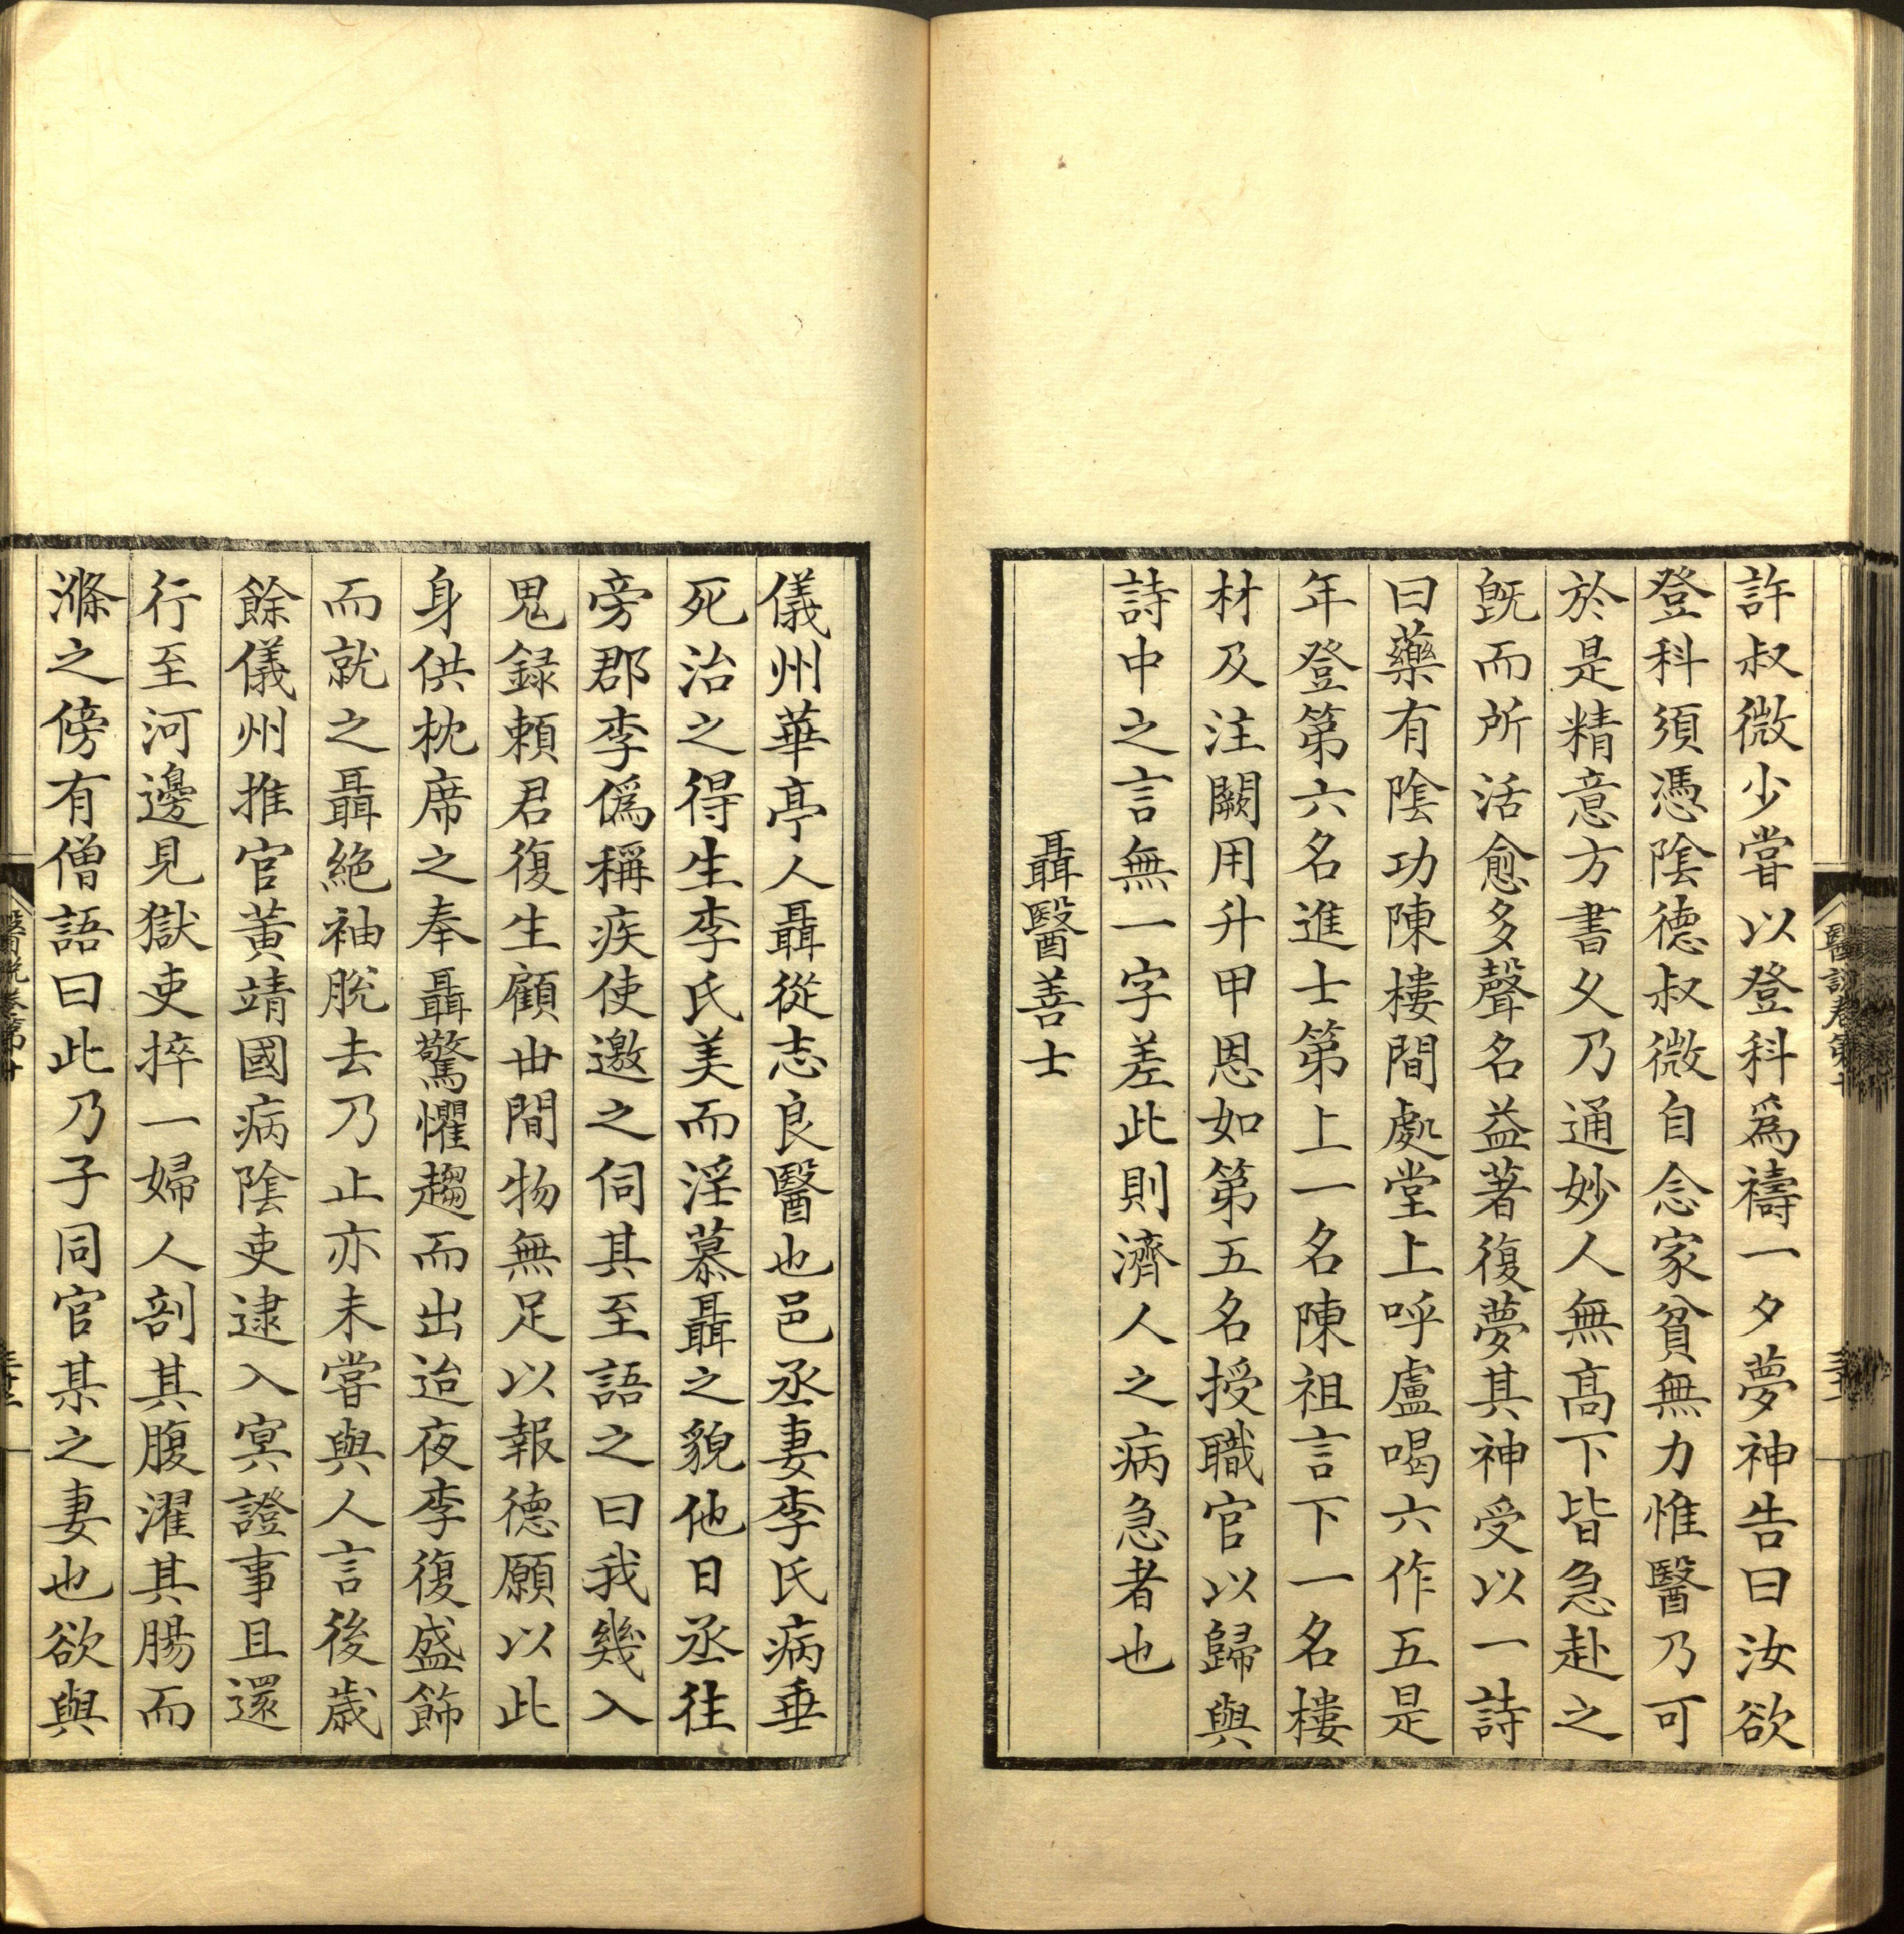 許叔微少嘗以登科爲禱一夕夢神告曰汝欲
登科須憑陰德叔微自念家貧無力惟醫乃可
於是精意方書乆乃通妙人無高下皆急赴之
旣而所活愈多聲名益著復夢其神受以一詩
曰藥有陰功陳樓間處堂上呼盧喝六作五是
年登第六名進士第上一名陳祖言下一名樓
材及注闕用升甲恩如第五名授職官以歸與
詩中之言無一字差此則濟人之病急者也
聶醫善士
儀州華亭人聶從志良醫也邑丞妻李氏病垂
死治之得生李氏美而淫慕聶之貌他日丞往
旁郡李僞稱疾使邀之伺其至語之曰我幾入
鬼録賴君復生顧丗間物無足以報德願以此
身供枕席之奉聶驚懼趨而出迨夜李復盛飾
而就之聶絶袖脫去乃止亦未嘗與人言後歲
餘儀州推官黃靖國病陰吏逮入冥證事且還
行至河邊見獄吏捽一婦人剖其腹濯其腸而
滌之傍有僧語曰此乃子同官某之妻也欲與